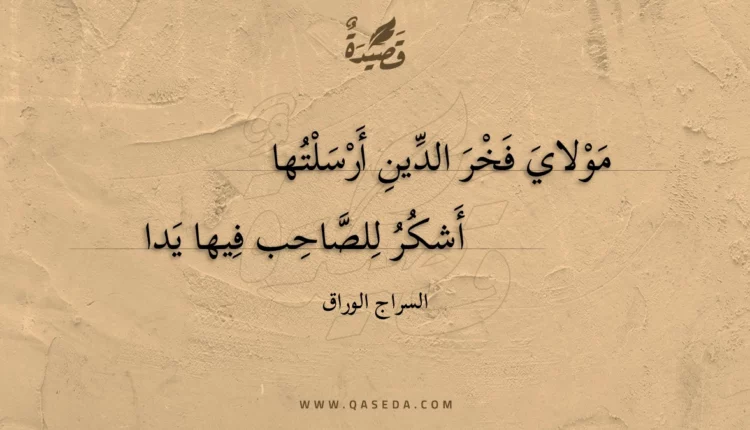 قَصِيدَةٌ
مَوْلايَ فَخْرَ الدِّينِ أَرْسَلْتُها
أَشكُرُ لِلصَّاحِب فِيها يَدا
السراج الوراق
WWW.QASEDA.COM